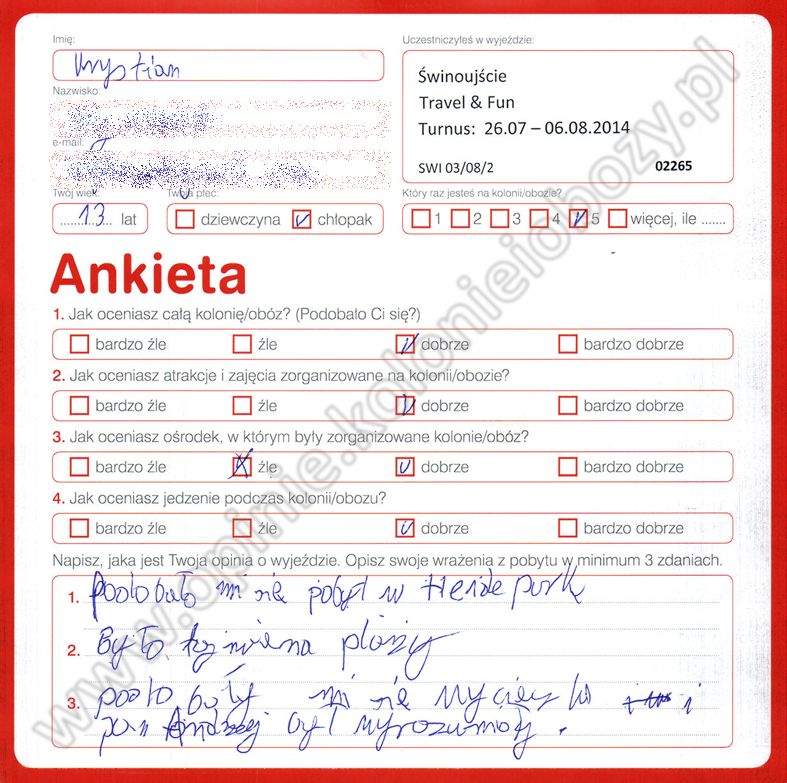 Imię:
Krystian
Nazwisko:
e-mail:
Twój wiek:
13 lat
Twoja płeć:
dziewczyna chłopak
Uczestniczyłeś w wyjeździe:
Świnoujście
Travel & Fun
Turnus: 26.07 – 06.08.2014
SWI 03/08/2 02265
Który raz jesteś na kolonii/obozie?
1 2 3 4 5 więcej, ile .......
Ankieta
1. Jak oceniasz całą kolonię/obóz? (Podobało Ci się?)
bardzo źle źle dobrze bardzo dobrze
2. Jak oceniasz atrakcje i zajęcia zorganizowane na kolonii/obozie?
bardzo źle źle dobrze bardzo dobrze
3. Jak oceniasz ośrodek, w którym były zorganizowane kolonie/obóz?
bardzo źle źle dobrze bardzo dobrze
4. Jak oceniasz jedzenie podczas kolonii/obozu?
bardzo źle źle dobrze bardzo dobrze
Napisz, jaka jest Twoja opinia o wyjeździe. Opisz swoje wrażenia z pobytu w minimum 3 zdaniach.
1. podobało mi się pobyt w Heide park
2. Było plaży
3. podobały mi się i
pan Andrzej był
www.opinie.kolonieiobozy.pl